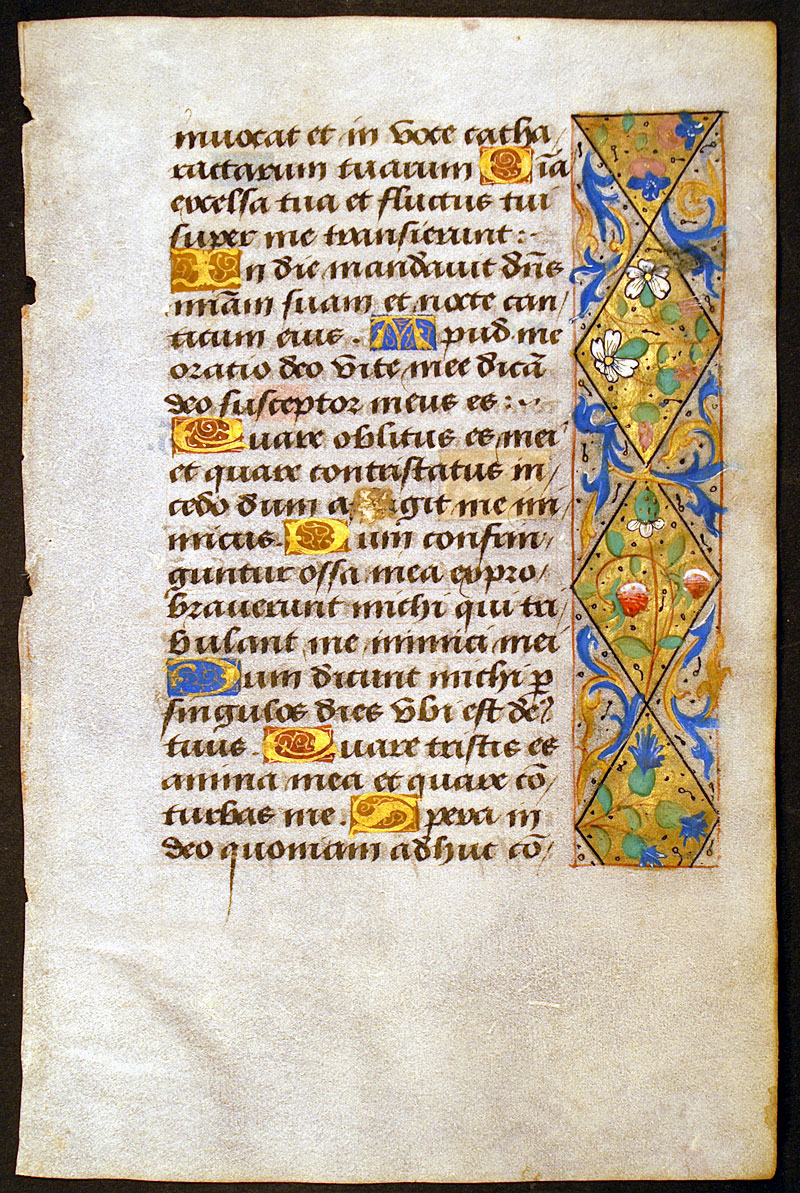 inuocat et in voce catha/
ractarum tuarum Oīa
excelsa tua et fluctus tui
super me transierunt:
In die mandauit dn̄s
miām suam et nocte can/
ticum eius. Apud me
oratio deo vite mee dicā
deo susceptor meus es:
Quare oblitus es mei
et quare contristatus in/
cedo dum a igit me ini
micus. Dum confrin/
guntur ossa mea expro/
brauerunt michi qui tri/
bulant me inimici mei
Dum dicunt michi ꝑ
singulos dies vbi est de/
tuus. Quare tristis es
anima mea et quare cō/
turbas me. Spera in
deo quoniam adhuc cō/